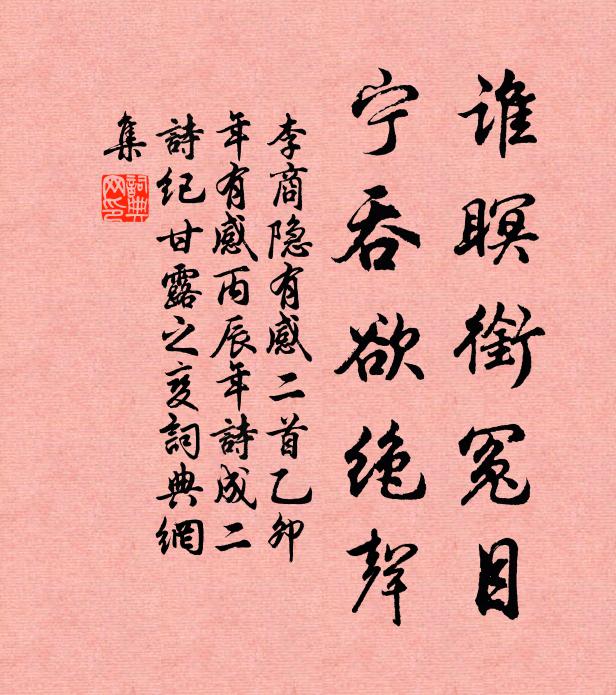 谁瞑銜冤目
宁吞欲绝聲
李商隐有感二首乙卯
年有感丙辰年詩成二
詩纪甘露之变詞典網
集
詞典网印